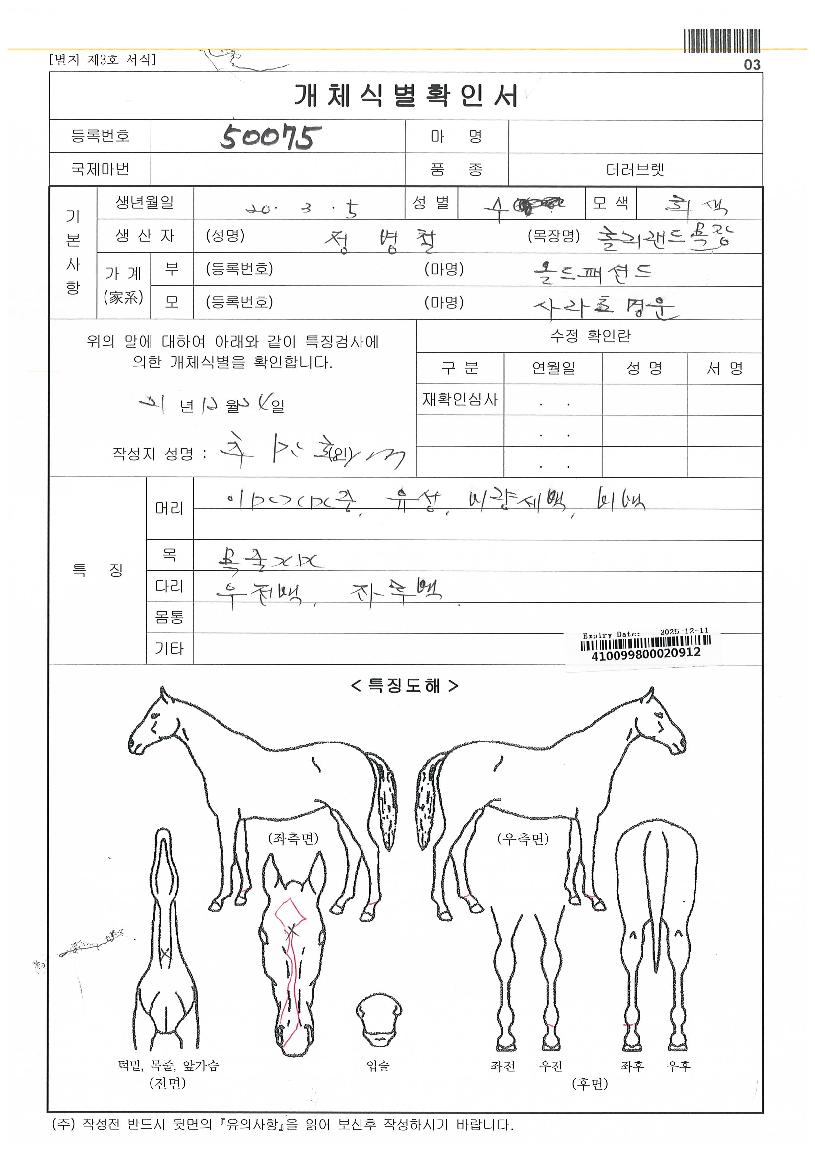 [별지 제3호 서식]
03
개체식별확인서
등록번호 50075 마 명
국제마번 품 종 더러브렛
기본사항
생년월일 20. 3. 5 성 별 수 모 색 회색
생 산 자 (성명) 정병철 (목장명) 홀리랜드목장
가 계 (家系)
부 (등록번호) (마명) 올드패션드
모 (등록번호) (마명) 사라호명운
위의 말에 대하여 아래와 같이 특징검사에
의한 개체식별을 확인합니다.
년 월 일
작성자 성명 : (인)
수정 확인란
구 분 연월일 성 명 서 명
재확인심사 . .
. .
. .
특 징
머리 유성, 비량세백, 비백
목 목줄
다리 우전백, 좌후백
몸통
기타
Expiry Date: 2025-12-11
410099800020912
< 특징도해 >
(좌측면) (우측면)
턱밑, 목줄, 앞가슴
(전면)
입술
좌전 우전 좌후 우후
(후면)
(주) 작성전 반드시 뒷면의 『유의사항』을 읽어 보신후 작성하시기 바랍니다.